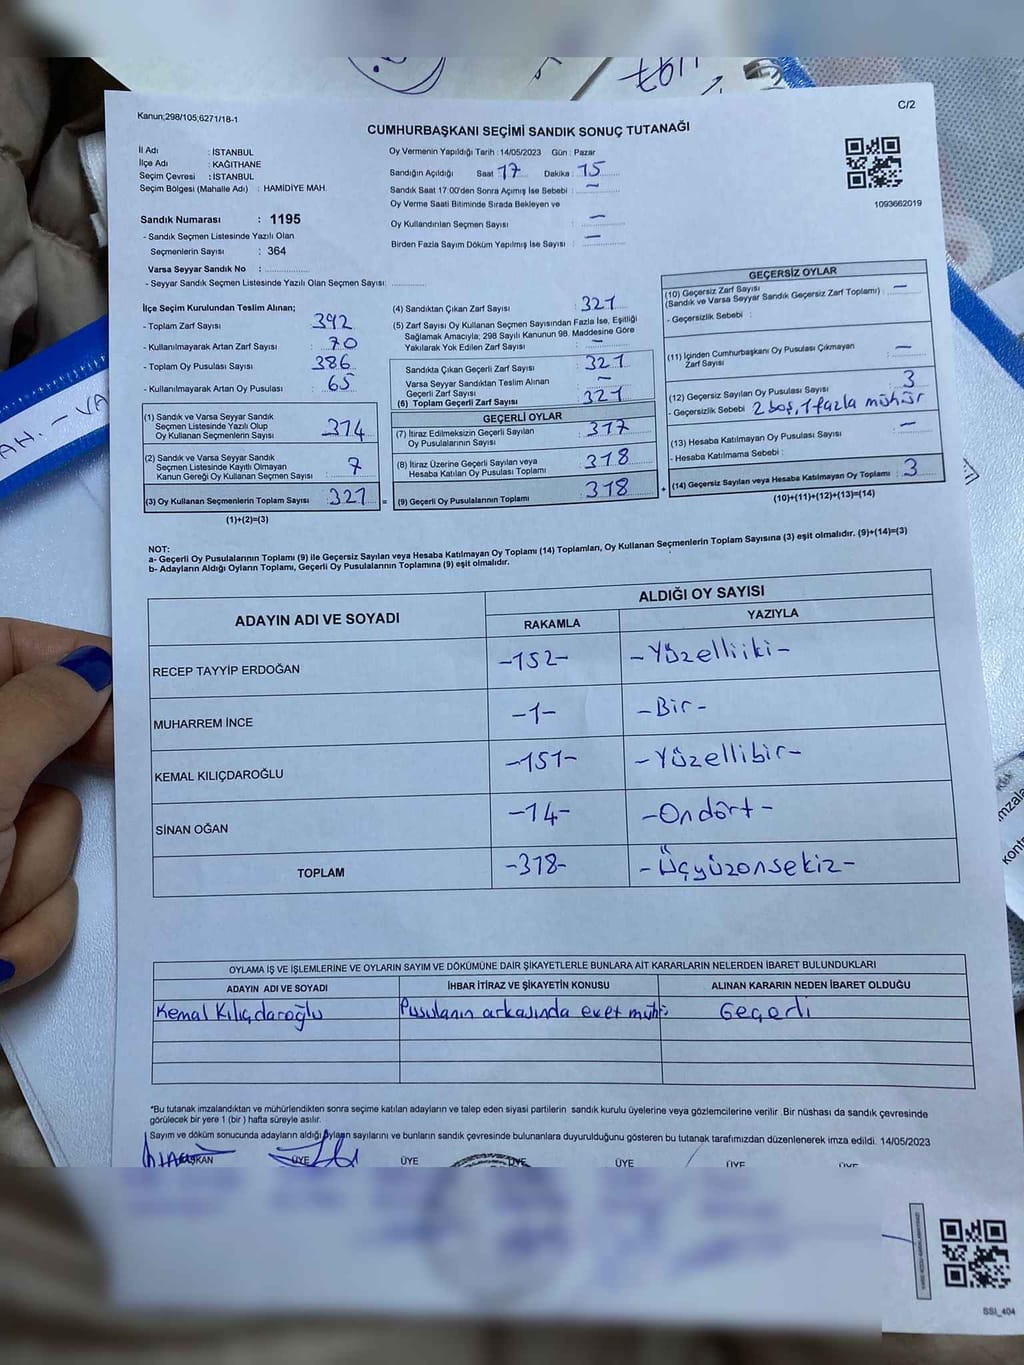 Kanun;298/105;6271/18-1
C/2
CUMHURBAŞKANI SEÇİMİ SANDIK SONUÇ TUTANAĞI
İl Adı : İSTANBUL
İlçe Adı : KAĞITHANE
Seçim Çevresi : İSTANBUL
Seçim Bölgesi (Mahalle Adı) : HAMİDİYE MAH.
Oy Vermenin Yapıldığı Tarih : 14/05/2023 Gün : Pazar
Sandığın Açıldığı Saat 17 Dakika : 15
Sandık Saat 17:00'den Sonra Açımış İse Sebebi : –
Oy Verme Saati Bitiminde Sırada Bekleyen ve
Oy Kullandırılan Seçmen Sayısı : –
Birden Fazla Sayım Döküm Yapılmış İse Sayısı : –
1093662019
Sandık Numarası : 1195
- Sandık Seçmen Listesinde Yazılı Olan
Seçmenlerin Sayısı : 364
Varsa Seyyar Sandık No :
- Seyyar Sandık Seçmen Listesinde Yazılı Olan Seçmen Sayısı:
İlçe Seçim Kurulundan Teslim Alınan;
- Toplam Zarf Sayısı : 392
- Kullanılmayarak Artan Zarf Sayısı : 70
- Toplam Oy Pusulası Sayısı : 386
- Kullanılmayarak Artan Oy Pusulası : 65
(1) Sandık ve Varsa Seyyar Sandık
Seçmen Listesinde Yazılı Olup
Oy Kullanan Seçmenlerin Sayısı : 314
(2) Sandık ve Varsa Seyyar Sandık
Seçmen Listesinde Kayıtlı Olmayan
Kanun Gereği Oy Kullanan Seçmen Sayısı : 7
(3) Oy Kullanan Seçmenlerin Toplam Sayısı : 321 =
(1)+(2)=(3)
(4) Sandıktan Çıkan Zarf Sayısı : 321
(5) Zarf Sayısı Oy Kullanan Seçmen Sayısından Fazla İse, Eşitliği
Sağlamak Amacıyla; 298 Sayılı Kanunun 98. Maddesine Göre
Yakılarak Yok Edilen Zarf Sayısı : –
Sandıkta Çıkan Geçerli Zarf Sayısı : 321
Varsa Seyyar Sandıktan Teslim Alınan
Geçerli Zarf Sayısı : –
(6) Toplam Geçerli Zarf Sayısı : 321
GEÇERLİ OYLAR
(7) İtiraz Edilmeksizin Geçerli Sayılan
Oy Pusulalarının Sayısı : 317
(8) İtiraz Üzerine Geçerli Sayılan veya
Hesaba Katılan Oy Pusulası Toplamı : 318
(9) Geçerli Oy Pusulalarının Toplamı : 318 +
GEÇERSİZ OYLAR
(10) Geçersiz Zarf Sayısı
(Sandık ve Varsa Seyyar Sandık Geçersiz Zarf Toplamı) : –
- Geçersizlik Sebebi :
(11) İçinden Cumhurbaşkanı Oy Pusulası Çıkmayan
Zarf Sayısı : –
(12) Geçersiz Sayılan Oy Pusulası Sayısı : 3
- Geçersizlik Sebebi 2 boş, 1 fazla mühür
(13) Hesaba Katılmayan Oy Pusulası Sayısı : –
- Hesaba Katılmama Sebebi :
(14) Geçersiz Sayılan veya Hesaba Katılmayan Oy Toplamı : 3
(10)+(11)+(12)+(13)=(14)
NOT:
a- Geçerli Oy Pusulalarının Toplamı (9) ile Geçersiz Sayılan veya Hesaba Katılmayan Oy Toplamı (14) Toplamları, Oy Kullanan Seçmenlerin Toplam Sayısına (3) eşit olmalıdır. (9)+(14)=(3)
b- Adayların Aldığı Oyların Toplamı, Geçerli Oy Pusulalarının Toplamına (9) eşit olmalıdır.
ADAYIN ADI VE SOYADI
ALDIĞI OY SAYISI
RAKAMLA YAZIYLA
RECEP TAYYİP ERDOĞAN -152- -Yüzelliiki-
MUHARREM İNCE -1- -Bir-
KEMAL KILIÇDAROĞLU -151- -Yüzellibir-
SİNAN OĞAN -14- -Ondört-
TOPLAM -318- -Üçyüzonsekiz-
OYLAMA İŞ VE İŞLEMLERİNE VE OYLARIN SAYIM VE DÖKÜMÜNE DAİR ŞİKAYETLERLE BUNLARA AİT KARARLARIN NELERDEN İBARET BULUNDUKLARI
ADAYIN ADI VE SOYADI İHBAR İTİRAZ VE ŞİKAYETİN KONUSU ALINAN KARARIN NEDEN İBARET OLDUĞU
Kemal Kılıçdaroğlu Pusulanın arkasında evet mühr Geçerli
*Bu tutanak imzalandıktan ve mühürlendikten sonra seçime katılan adayların ve talep eden siyasi partilerin sandık kurulu üyelerine veya gözlemcilerine verilir. Bir nüshası da sandık çevresinde
görülecek bir yere 1 (bir) hafta süreyle asılır.
Sayım ve döküm sonucunda adayların aldığı oyların sayılarını ve bunların sandık çevresinde bulunanlara duyurulduğunu gösteren bu tutanak tarafımızdan düzenlenerek imza edildi. 14/05/2023
BAŞKAN ÜYE ÜYE ÜYE ÜYE ÜYE ÜYE
SSI_404